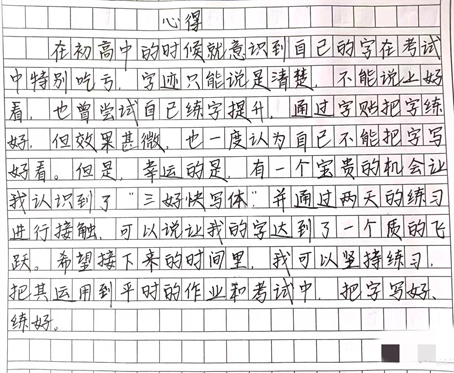 心得
在初高中的时候就意识到自己的字在考试
中特别吃亏，字迹只能说是清楚，不能说上好
看，也曾尝试自己练字提升，通过字贴把字练
好，但效果甚微，也一度认为自己不能把字写
好看。但是，幸运的是，有一个宝贵的机会让
我认识到了“三好快写体”并通过两天的练习
进行接触，可以说让我的字达到了一个质的飞
跃。希望接下来的时间里，我可以坚持练习，
把其运用到平时的作业和考试中，把字写好、
练好。